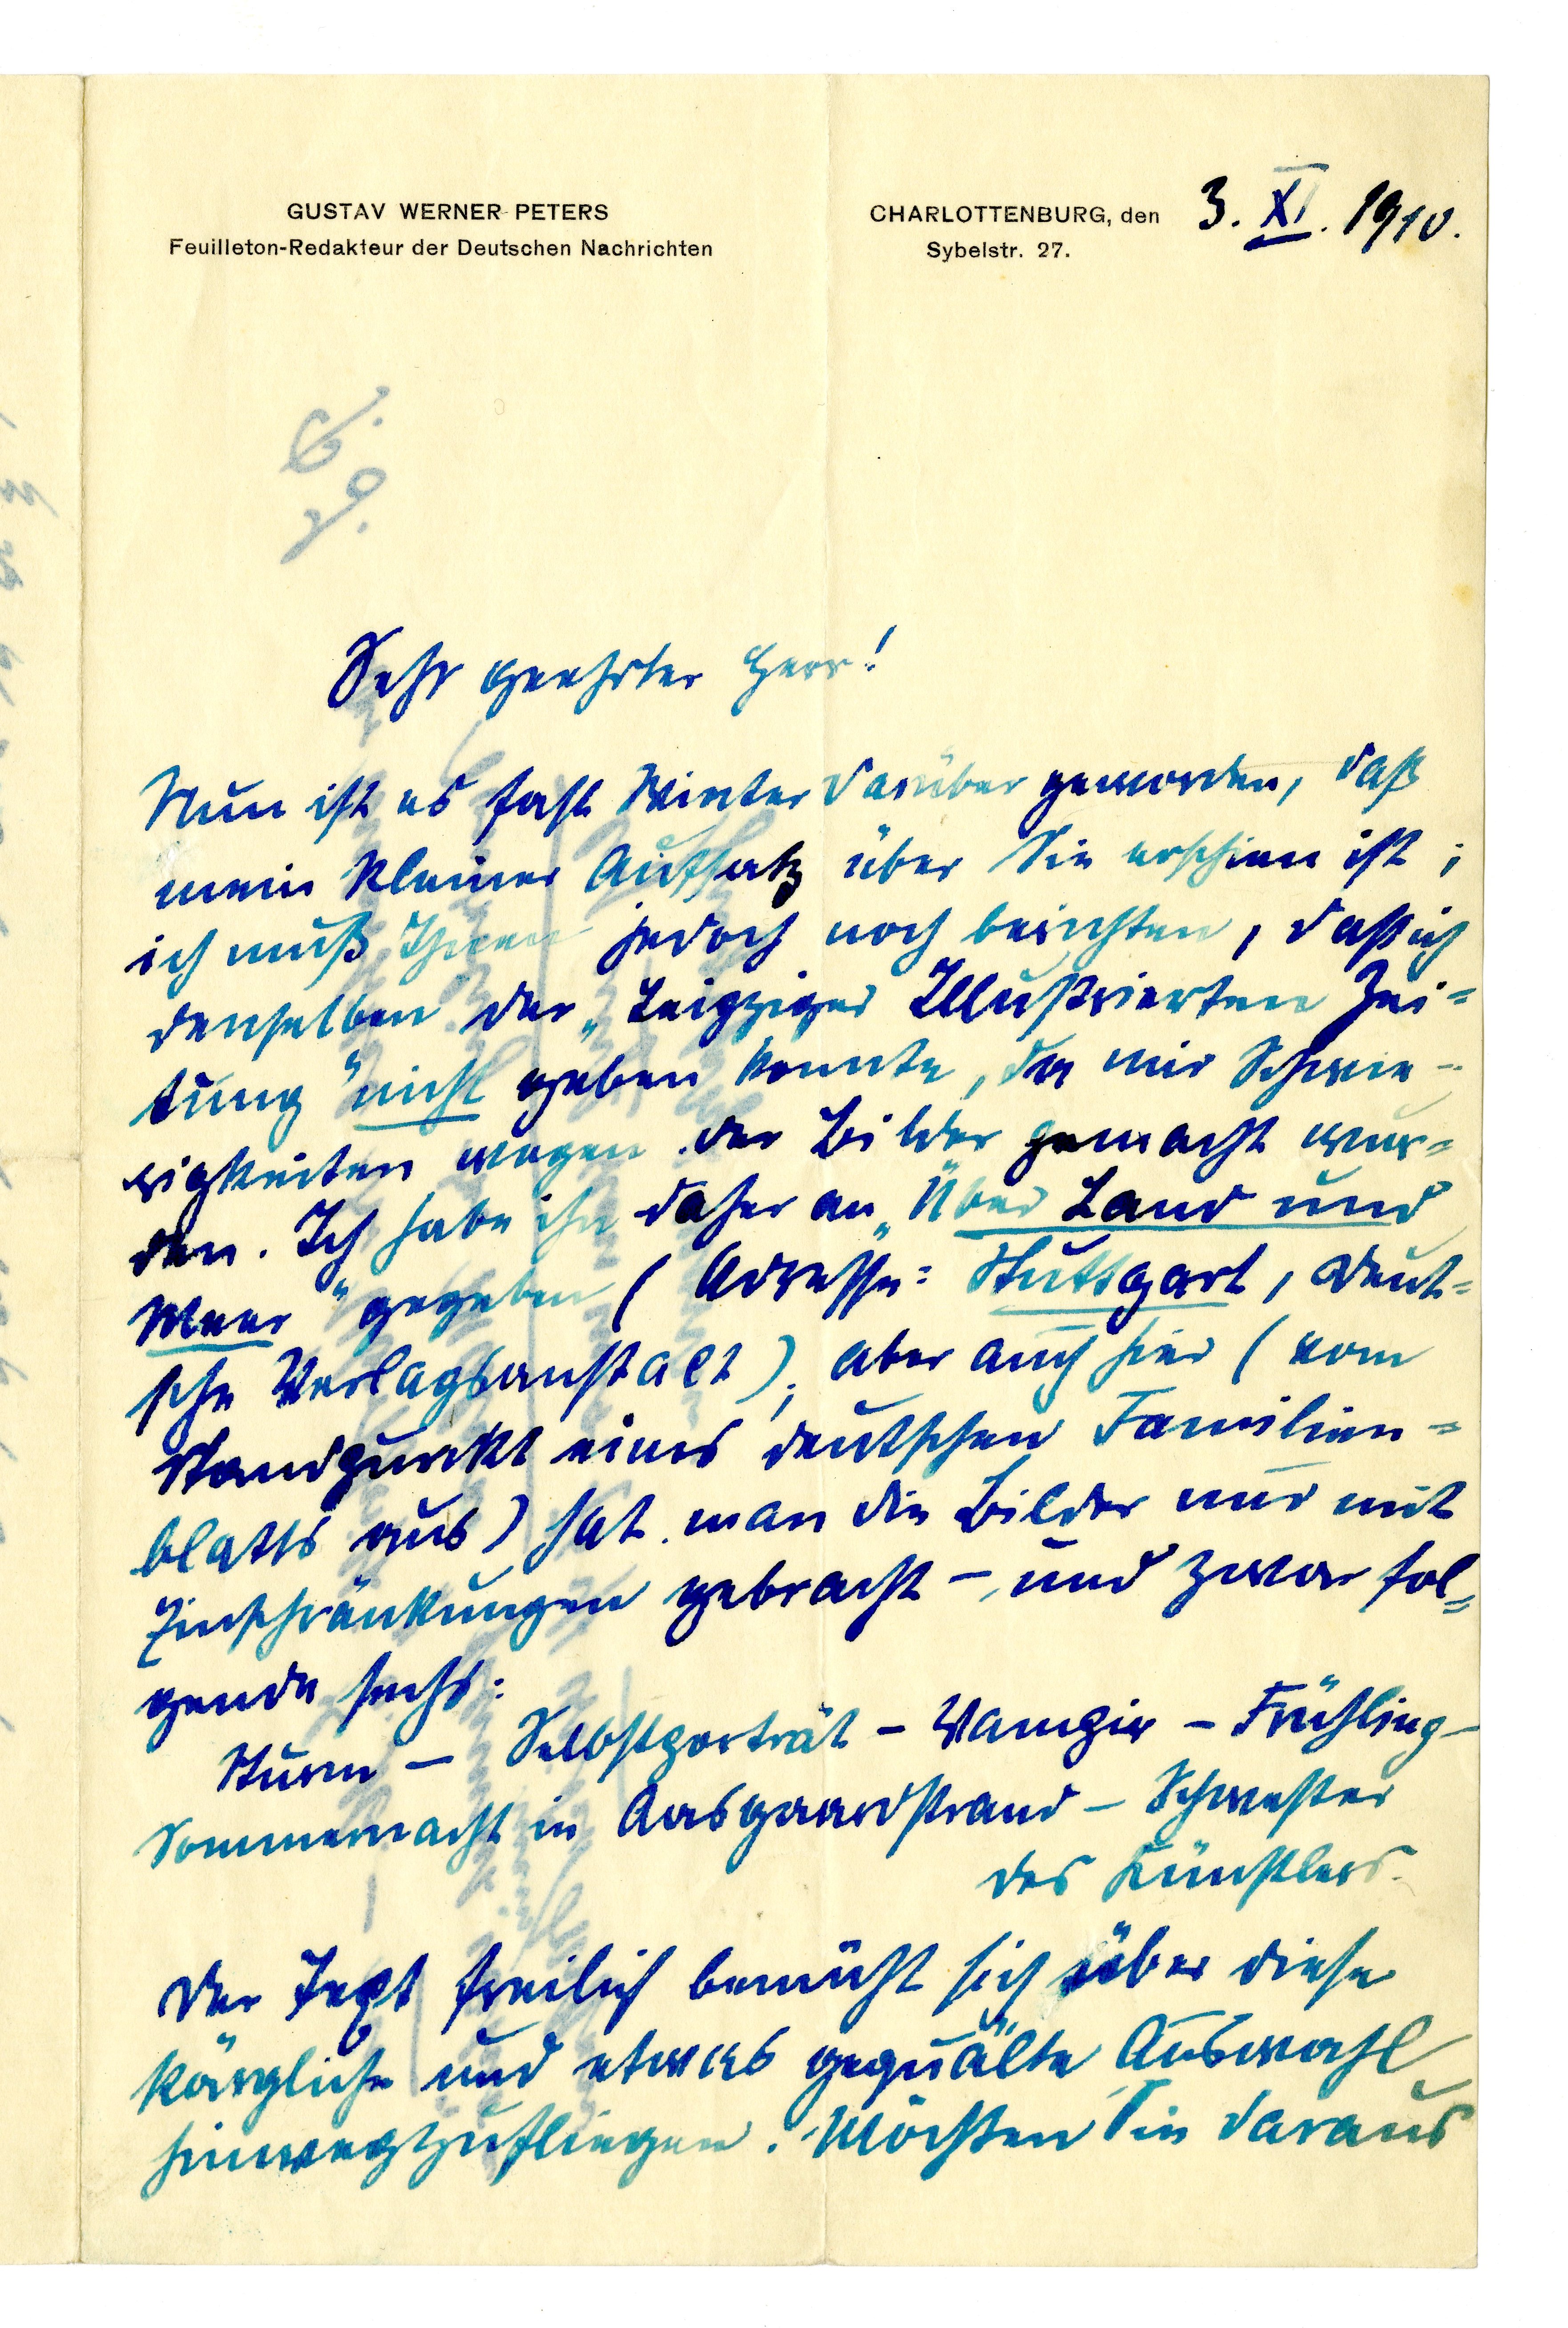 GUSTAV WERNER PETERS
Feuilleton-Redakteur der Deutschen Nachrichten
CHARLOTTENBURG, den 3. XI. 1910.
Sybelstr. 27.
Sehr geehrter Herr!
Nun ist es fast Winter darüber geworden, daß
mein kleiner Aufsatz über Sie erschien ist;
ich muß Ihnen jedoch noch berichten, daß ich
denselben der „Leipziger Illustrierten Zei=
tung" nicht geben konnte, da mir Schwie-
rigkeiten wegen der Bilder gemacht wur=
den. Ich habe ihn daher an „Über Land und
Meer" gegeben (Adresse: Stuttgart, Deut=
sche Verlagsanstalt); aber auch hier (vom
Standpunkt eines deutschen Familien=
blatts aus) hat man die Bilder nur mit
Einschränkungen gebracht – und zwar fol=
gende sechs:
Sturm – Selbstporträt – Vampir – Frühling –
Sommernacht in Aasgaardstrand – Schwester
des Künstlers.
Der Text freilich bemüht sich über diese
kärgliche und etwas gequälte Auswahl
hinwegzufliegen. Möchten Sie daraus